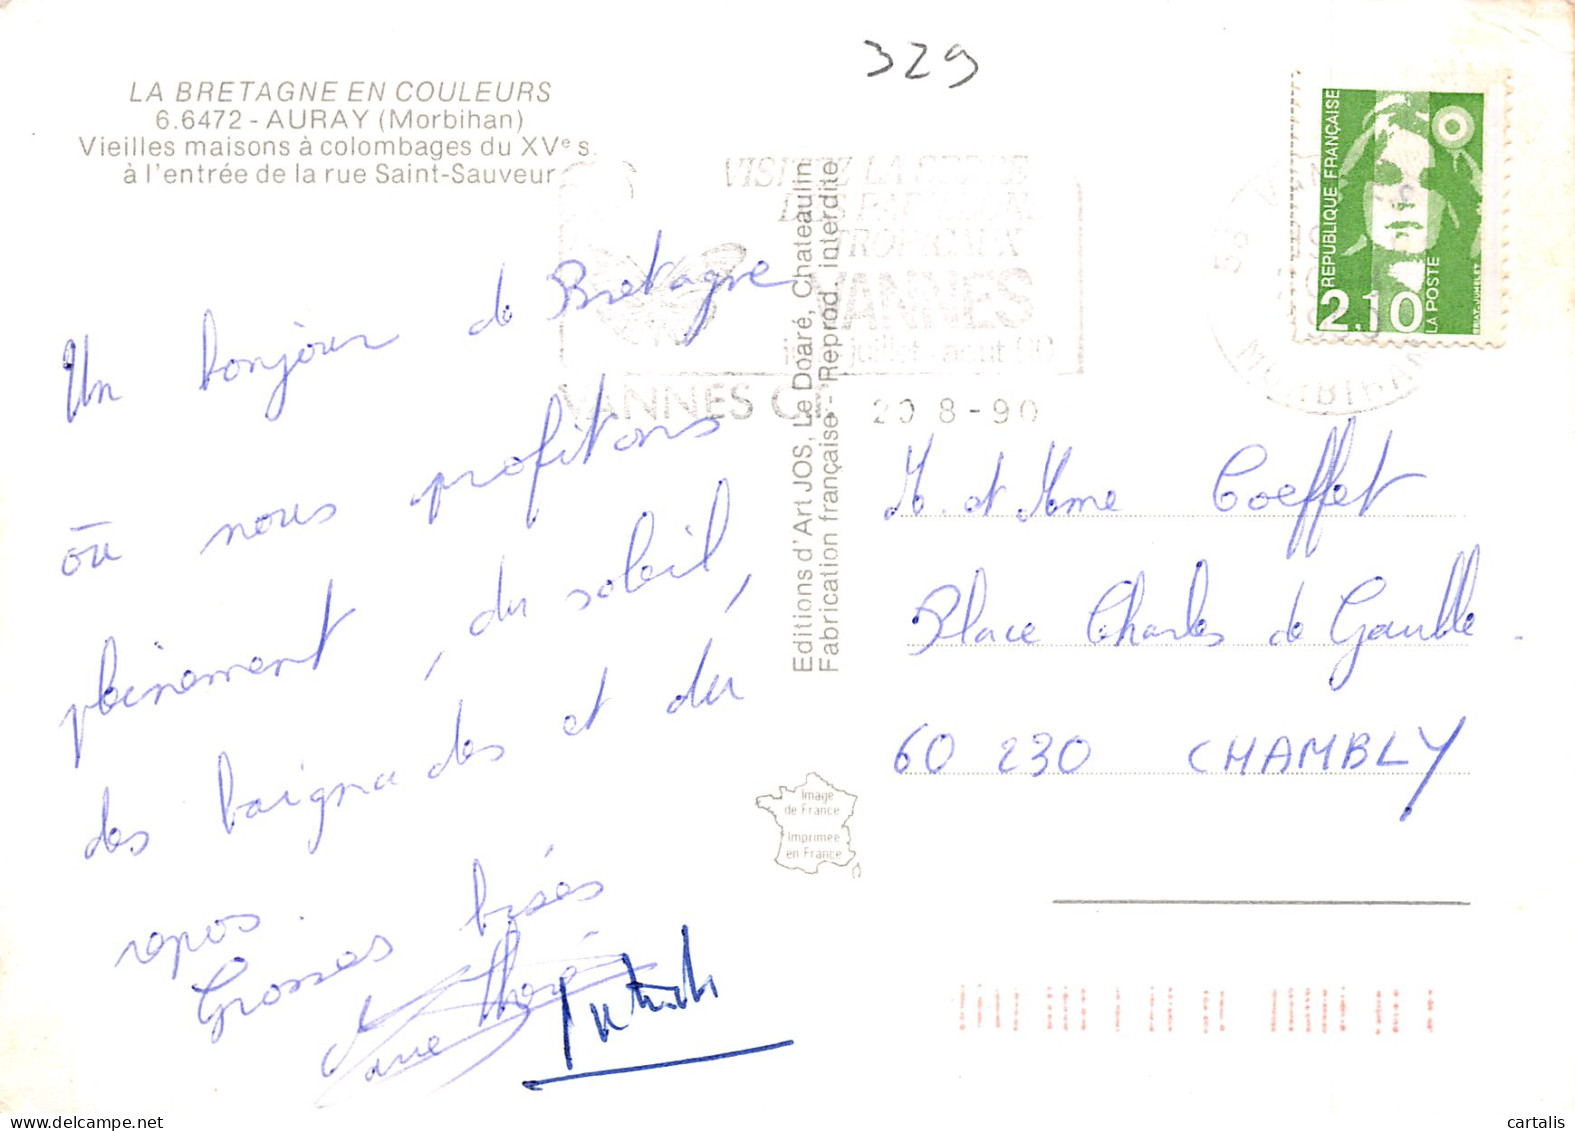 329
LA BRETAGNE EN COULEURS
6.6472 - AURAY (Morbihan)
Vieilles maisons à colombages du XVe s.
à l'entrée de la rue Saint-Sauveur
Un bonjour de Bretagne
où nous profitons
pleinement, du soleil,
des baignades et du
repos.
Grosses bises
Editions d'Art JOS, Le Doaré, Chateaulin
Fabrication française - Reprod. interdite
VISITEZ LA SERRE
DES PAPILLONS
TROPICAUX
VANNES
juillet août 90
VANNES CT
20 8-90
MORBIHAN
REPUBLIQUE FRANÇAISE
2,10
LA POSTE
BRIAT-JUMELET
M. et Mme Coeffet
Place Charles de Gaulle.
60 230 CHAMBLY
Image
de France
Imprimée
en France
cartalis